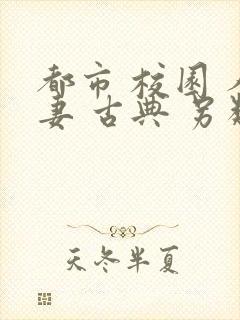 都市 校园
妻 古典 另
天冬半夏